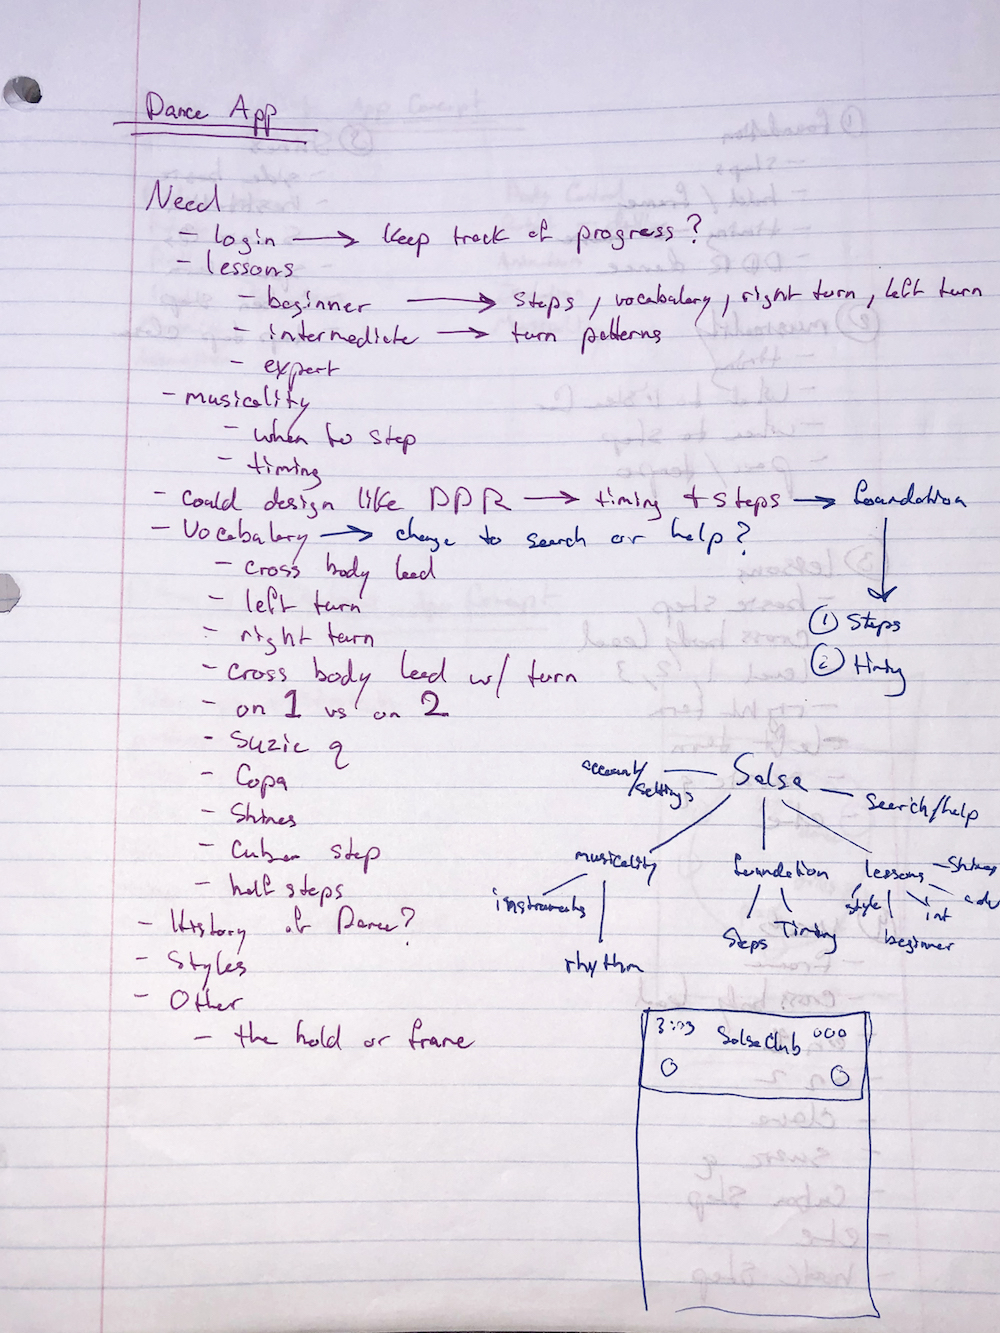 Dance App
Need
- login → keep track of progress?
- lessons
- beginner → steps, vocabalary, right turn, left turn
- intermediate → turn patterns
- expert
- musicality
- when to step
- timing
- could design like DDR → timing + steps → foundation
① Steps
② timing
- Vocabalary → change to search or help?
- cross body lead
- left turn
- right turn
- cross body lead w/ turn
- on 1 vs on 2
- Suzie q
- Copa
- Shines
- Cuban step
- half steps
- History of Dance?
- Styles
- Other
- the hold or frame
Salsa
account/settings
search/help
musicality
instruments
rhythm
foundation
Steps
Timing
lessons
- Shines
style
beginner
int
adv
3:03 SalsaClub 000